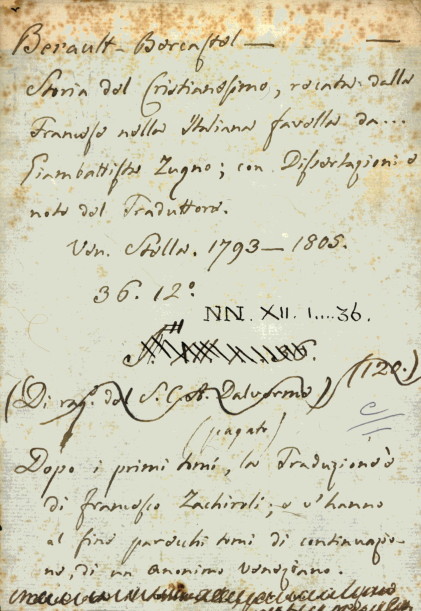 Berault-Bercastel —
Storia del Cristianesimo, recata dalla
Francese nella Italiana favella da...
Giambattista Zugno; con Dissertazioni e
note del Traduttore.
Ven. Stella. 1793—1805.
36. 12°.
NN. XII. 1....36.
(Di rag.e del S. C. A. Dalvermo) (120.)
(pagato)
Dopo i primi tomi, la Traduzione è
di Francesco Zachiroli; e v'hanno
al fine parecchi tomi di continuazio-
ne, di un anonimo veneziano.